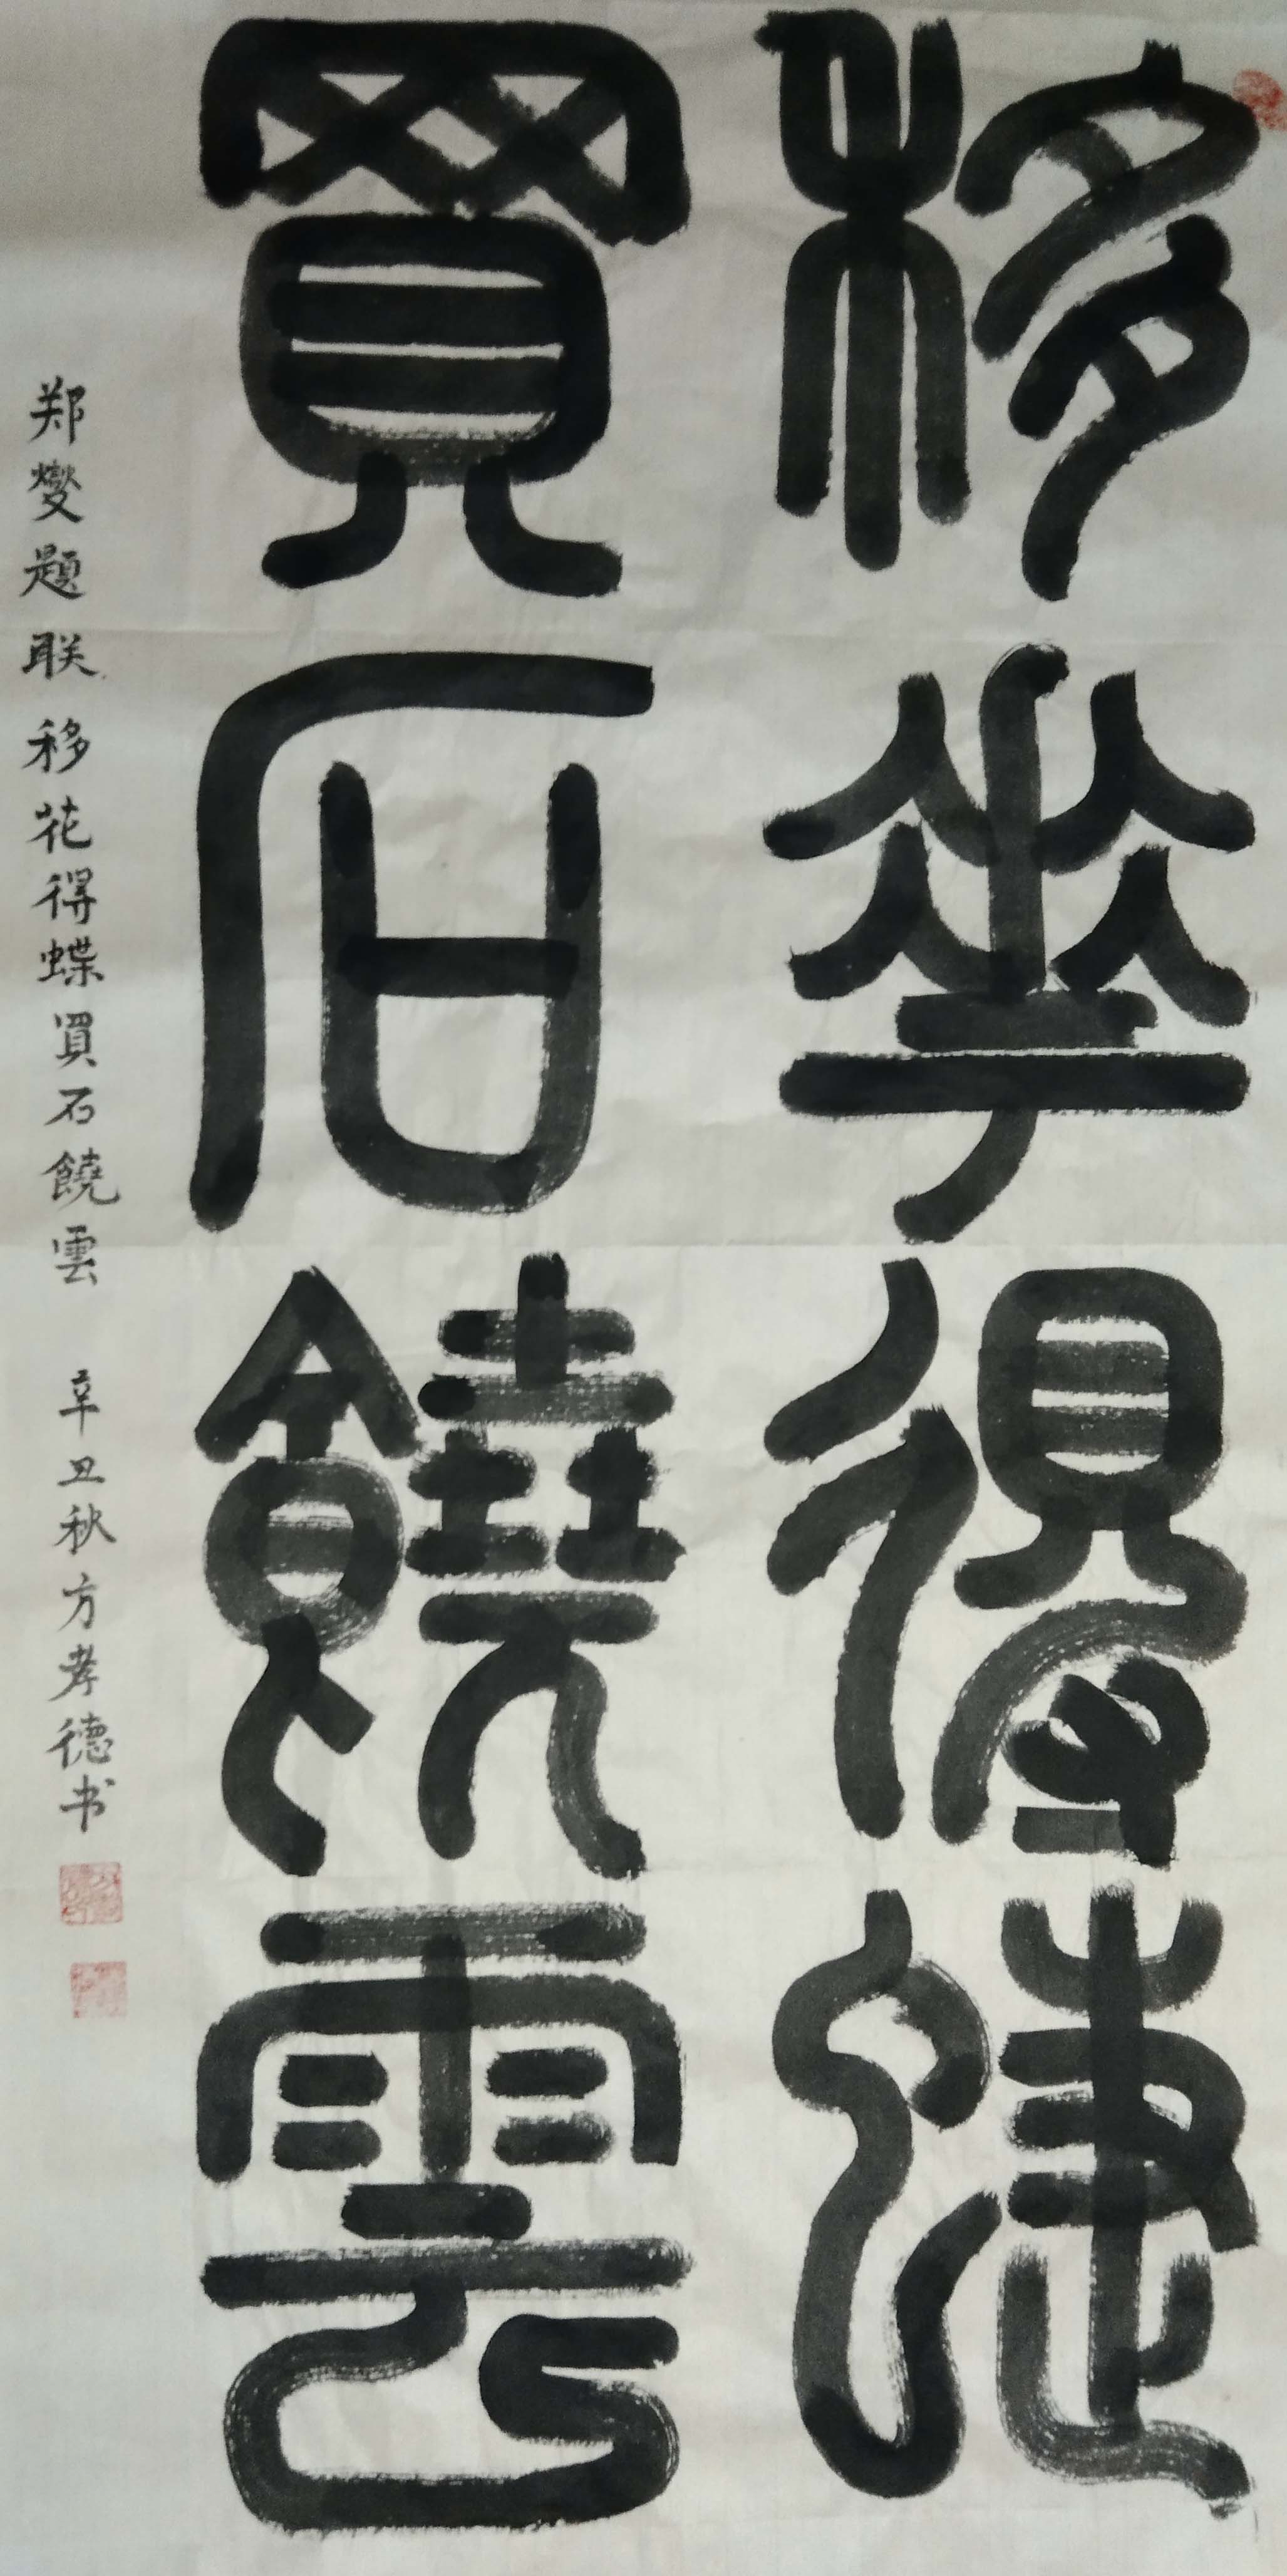 移華得蜨
買石饒雲
郑燮题联移花得蝶買石饒雲 辛丑秋方孝德书